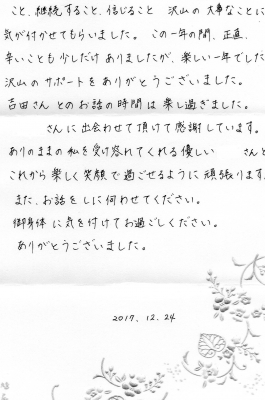 こと、継続すること、信じること 沢山の大事なことに
気が付かせてもらいました。この一年の間、正直、
辛いことも少しだけありましたが、楽しい一年でした
沢山のサポートをありがとうございました。
吉田さんとのお話の時間は楽し過ぎました。
さんに出会わせて頂けて感謝しています。
ありのままの私を受け容れてくれる優しい さんと
これから楽しく笑顔で過ごせるように頑張ります
また、お話をしに伺わせてください。
御身体に気を付けてお過ごしください。
ありがとうございました。
2017.12.24